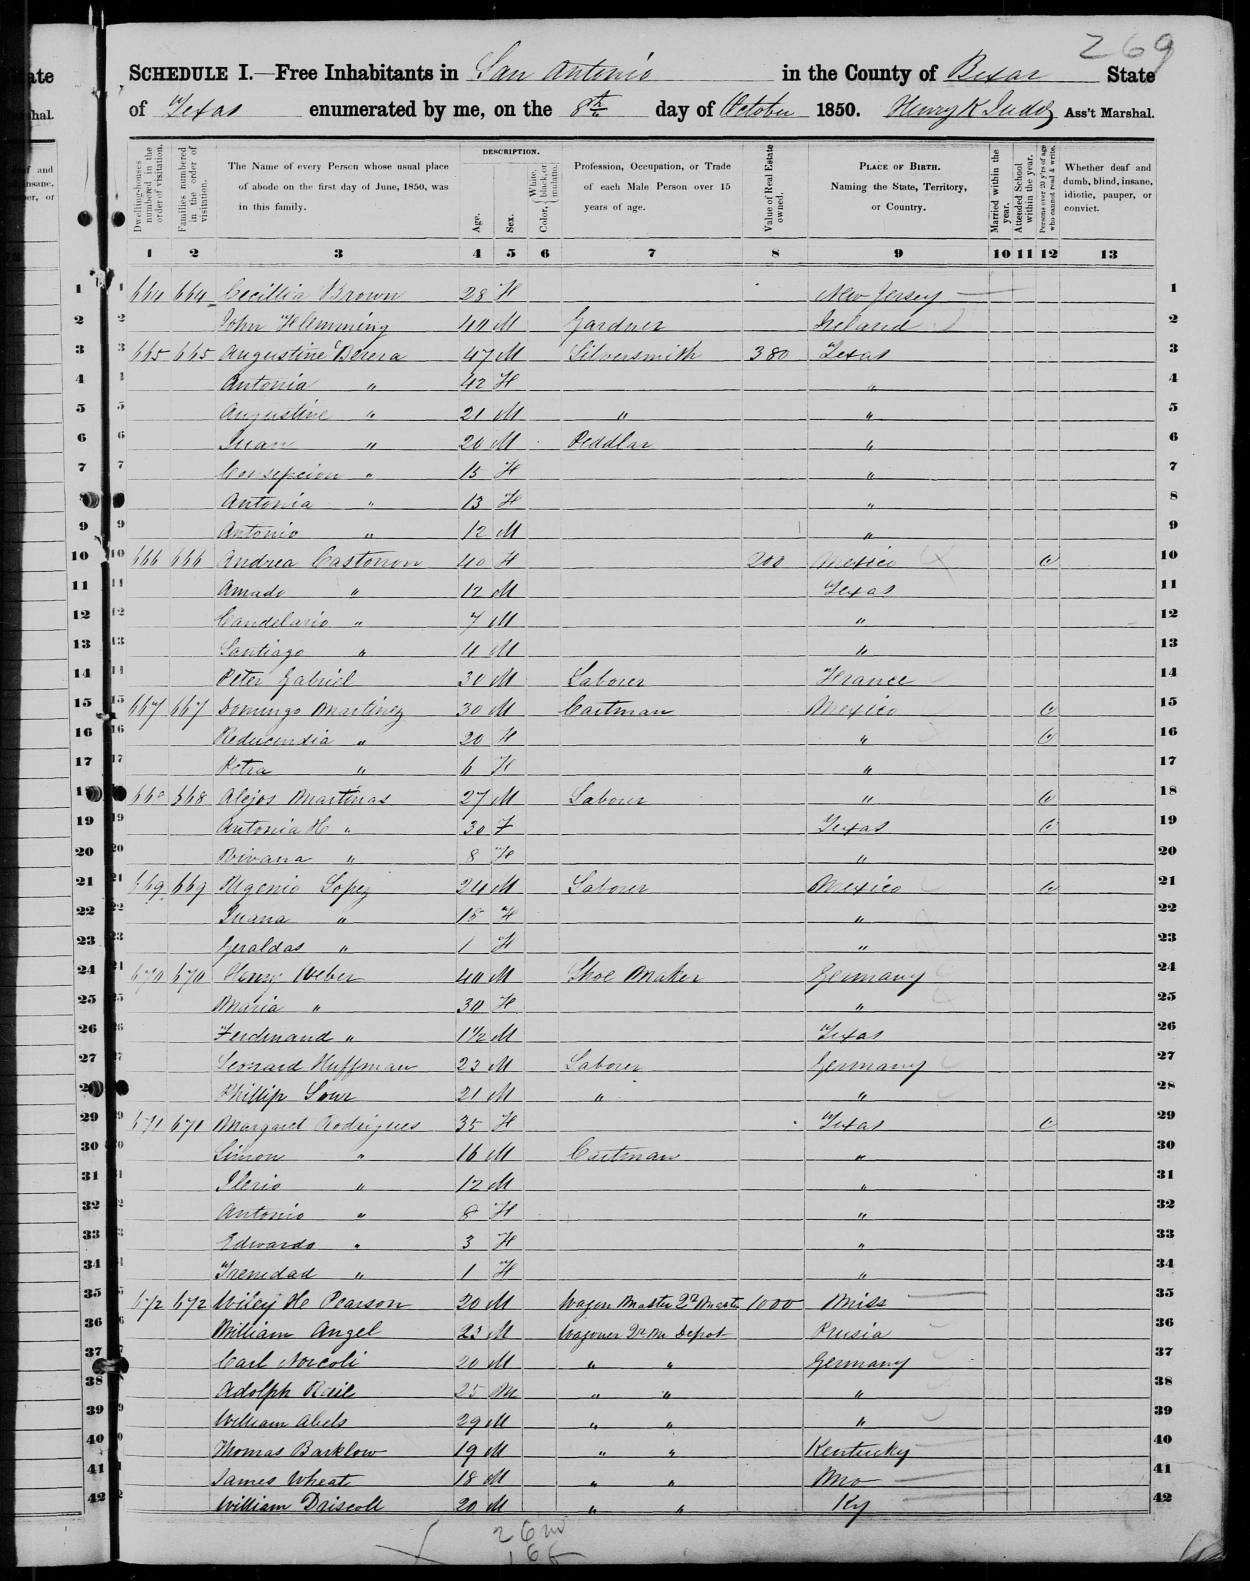 269
SCHEDULE I.—Free Inhabitants in San Antonio in the County of Bexar State
of Texas enumerated by me, on the 8th day of October 1850. Henry K Judd Ass't Marshal.
Dwelling-houses numbered in the order of visitation.
Families numbered in the order of visitation.
The Name of every Person whose usual place of abode on the first day of June, 1850, was in this family.
DESCRIPTION.
Age.
Sex.
Color, { White, black, or mulatto.
Profession, Occupation, or Trade of each Male Person over 15 years of age.
Value of Real Estate owned.
PLACE OF BIRTH. Naming the State, Territory, or Country.
Married within the year.
Attended School within the year.
Persons over 20 y'rs of age who cannot read & write.
Whether deaf and dumb, blind, insane, idiotic, pauper, or convict.
1 2 3 4 5 6 7 8 9 10 11 12 13
1 664 664 Cecillia Brown 28 F New Jersey 1
2 John Flemming 40 M Gardner Ireland 2
3 665 665 Augustine Berera 47 M Silversmith 380 Texas 3
4 Antonia " 42 F " 4
5 Augustine " 21 M " " 5
6 Juan " 20 M Peddlar " 6
7 Consepcion " 15 F " 7
8 Antonia " 13 F " 8
9 Antonio " 12 M " 9
10 666 666 Andrea Castonon 40 F 200 Mexico 10
11 Amado " 12 M Texas 11
12 Candelario " 7 M " 12
13 Santiago " 4 M " 13
14 Peter Gabriel 30 M Laborer France 14
15 667 667 Domingo Martinez 30 M Cartman Mexico 15
16 Reducendia " 20 F " 16
17 Petra " 6 F " 17
18 668 668 Alejos Martinas 27 M Laborer " 18
19 Antonia F " 30 F Texas 19
20 Bivana " 8 F " 20
21 669 669 Lopez 24 M Laborer Mexico 21
22 Juana " 18 F " 22
23 Geraldas " 1 F " 23
24 670 670 Henry Weber 40 M Shoe Maker Germany 24
25 Maria " 30 F " 25
26 Ferdinand " 1 1/2 M Texas 26
27 Leonard Huffman 23 M Laborer Germany 27
28 Phillip Sowr 21 M " " 28
29 671 671 Margaret Rodrigues 35 F Texas 29
30 Simon " 16 M Cartman " 30
31 Ilerio " 12 M " 31
32 Antonio " 8 F " 32
33 Edwardo " 3 F " 33
34 Trenidad " 1 F " 34
35 672 672 Wiley H Pearson 20 M Wagon Master 1000 Miss 35
36 William Angel 23 M Wagoner Qr M Depot Prusia 36
37 Carl Norcoli 20 M " " Germany 37
38 Adolph Rail 25 M " " " 38
39 William Abels 29 M " " " 39
40 Thomas Barklow 19 M " " Kentucky 40
41 James Wheat 18 M " " Mo 41
42 William Driscoll 20 M " " Ky 42